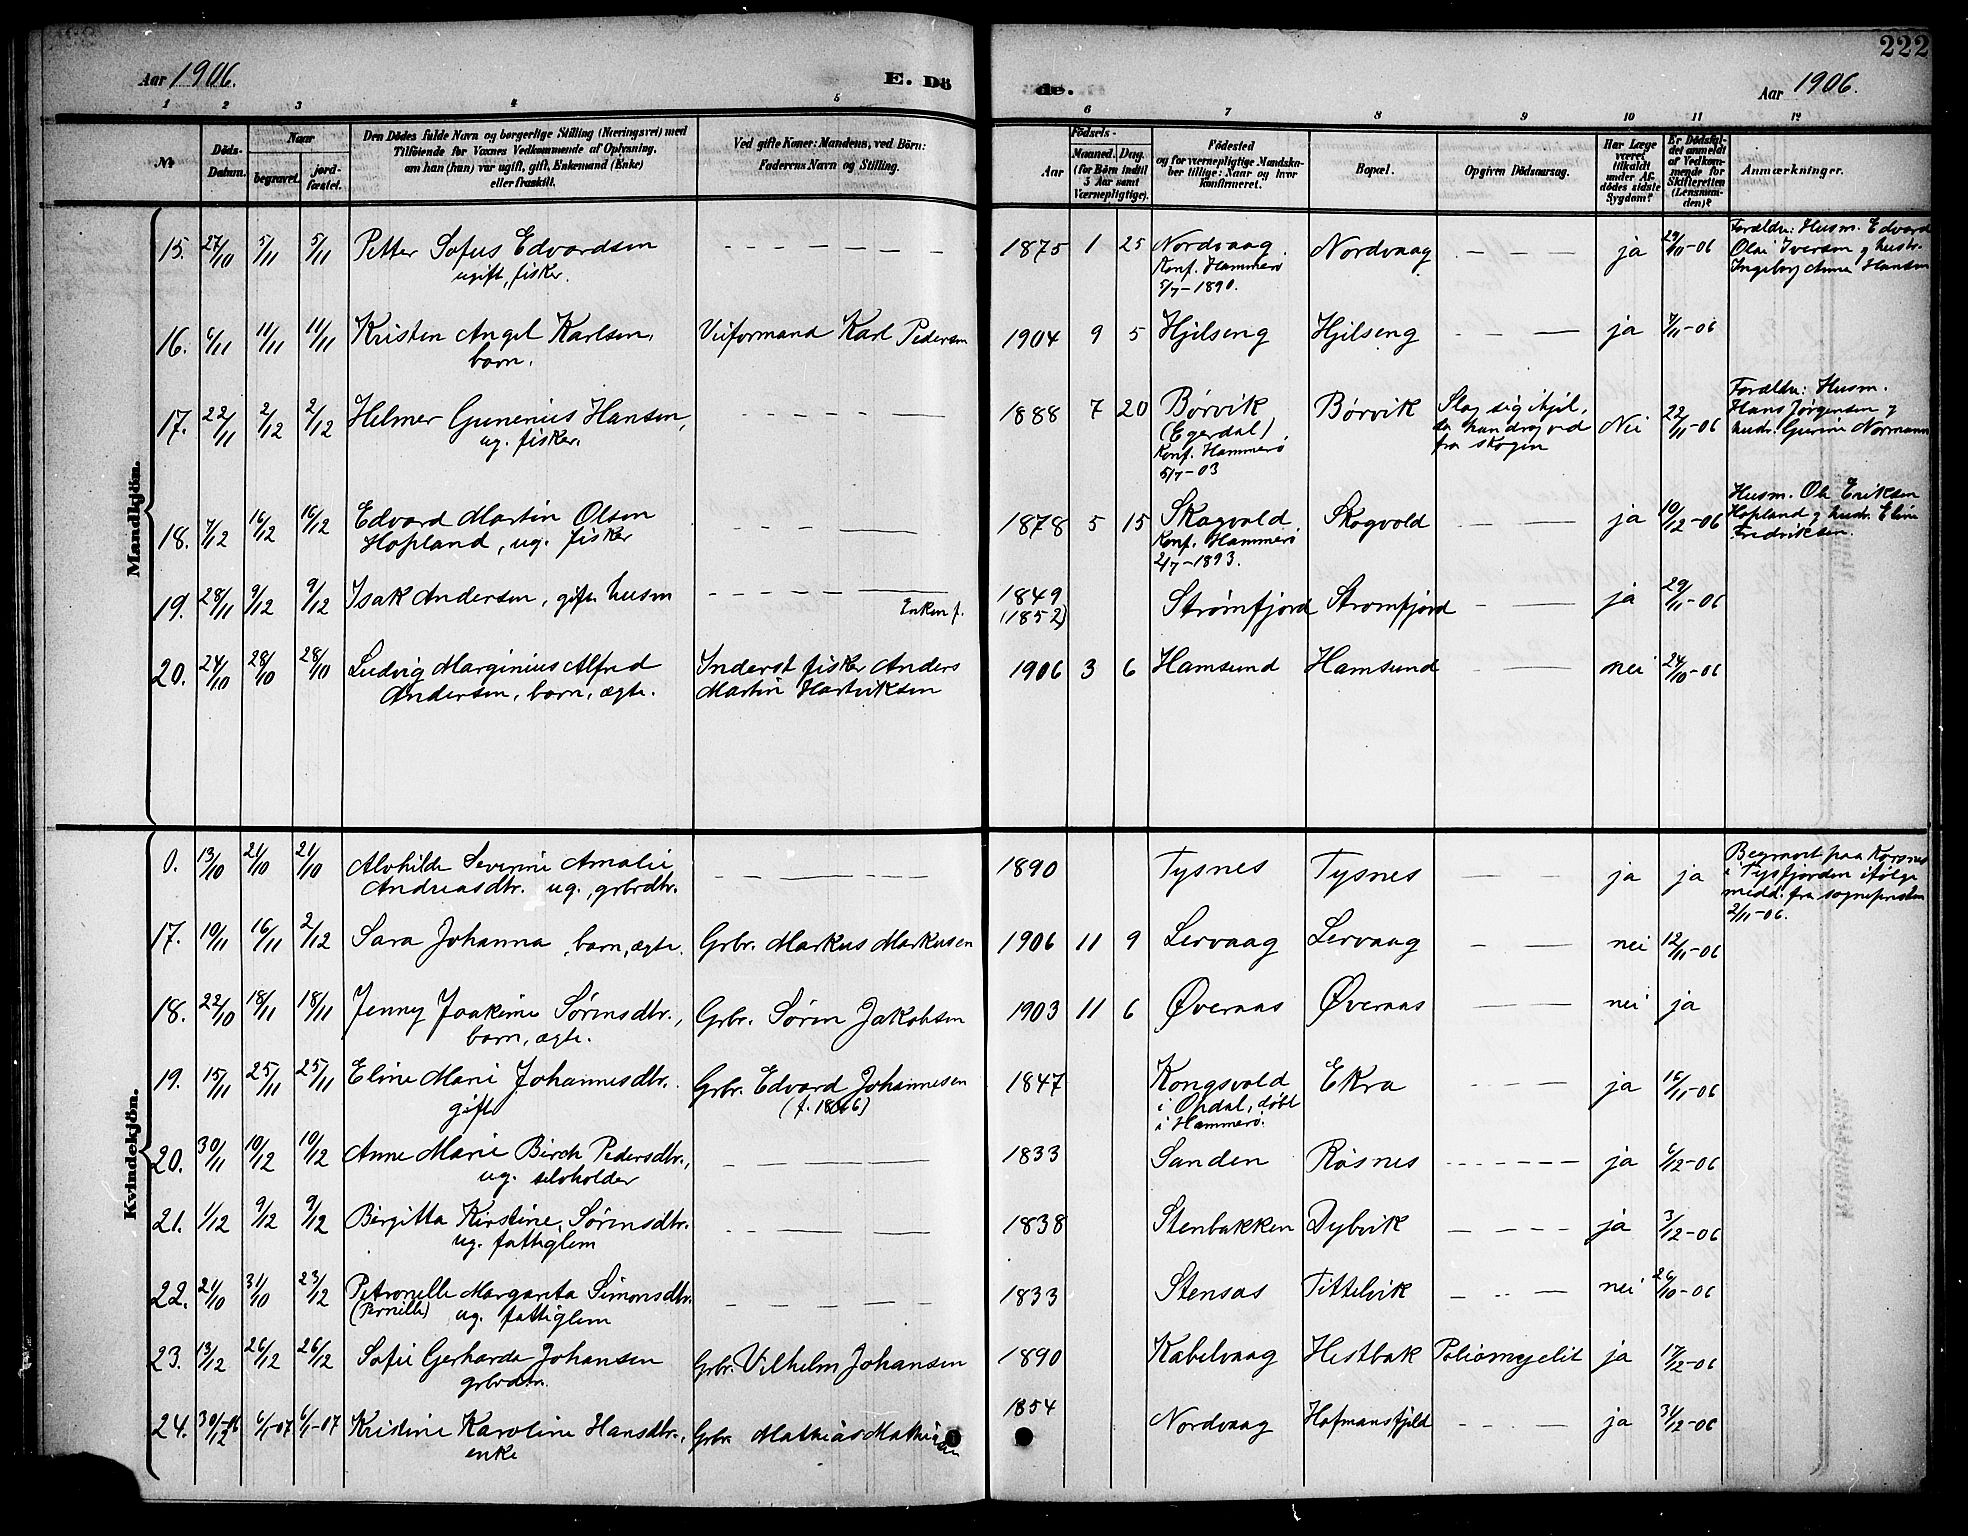 222
Aar 1906. E. Dö de. Aar 1906.
1 2 3 4 5 6 7 8 9 10 11 12
No. Döds-Datum. Naar begravet. jord-fæstet. Den Dödes fulde Navn og borgerlige Stilling (Næringsvei) med Tilföiende for Voxnes Vedkommende af Oplysning, om han (hun) var ugift, gift, Enkemand (Enke) eller fraskilt. Ved gifte Koner: Mandens, ved Börn: Faderens Navn og Stilling. Födsels- Aar Maaned. Dag. (for Börn indtil 5 Aar samt Værnepligtige). Födested og for værnepligtige Mandskaber tillige: Naar og hvor konfirmeret. Bopæl. Opgiven Dödsaarsag. Har Læge været tilkaldt under Afdödes sidste Sygdom? Er Dödsfaldet anmeldt af Vedkommende for Skifteretten (Lensmanden)? Anmærkninger.
Mandkjön.
15. 27/10 5/11 5/11 Petter Sofus Edvardsen - - - - - 1875 1 25 Nordvaag Nordvaag - - - ja 29/10-06 Forældre: Husm. Edvard
ugift, fisker. Konf. Hammerö Olai Iversen g hustr.
5/7-1890. Ingeborg Anna Hansen
16. 6/11 11/11 11/11 Kristen Angel Karlsen, Veiformand Karl Pedersen 1904 9 5 Hjilseng Hjilseng - - ja 7/11-06
barn.
17. 22/11 2/12 2/12 Helmer Gunerius Hansen, - - - - - 1888 7 20 Børvik Børvik Slog sig ihjel, Nei 22/11-06 Forældre: Husm.
ug. fisker. (Egerdal) da han drog ved Hans Jørgensen g
Konf. Hammerö fra skogen hustr. Gurine Normann
5/7-03
18. 7/12 16/12 16/12 Edvard Martin Olsen - - - 1878 5 15 Skogvold Skogvold - - ja 10/12-06 Husm. Ole Eriksen
Hopland, ug. fisker Konf. Hammerö Hopland g hustr. Eline
2/7-1893. Fredriksen.
19. 28/11 9/12 9/12 Isak Andersen, gift husm - - - - 1849 Strømfjord Strømfjord - - ja 29/11-06
Enken f. (1852)
20. 24/10 28/10 28/10 Ludvig Marginius Alfred Inderst fisker Anders 1906 3 6 Hamsund Hamsund - - nei 24/10-06
Andersen, barn, ægte. Martin Hartviksen
Kvindekjön.
0. 13/10 21/10 21/10 Alvhilde Severine Amalie - - - 1890 Tysnes Tysnes - - ja ja Begravet paa Korsnes
Andreasdtr. ug., grbrdtr. i Tysfjorden ifølge
medd. fra sognepresten
2/11-06.
17. 10/11 16/11 2/12 Sara Johanna, barn, ægte. Grbr. Markus Markusen 1906 11 9 Lervaag Lervaag - - nei 12/11-06
18. 22/10 18/11 18/11 Jenny Joakime Sørensdtr., Grbr. Søren Jakobsen 1903 11 6 Øveraas Øveraas - - nei ja
barn, ægte.
19. 15/11 25/11 25/11 Eline Marie Johannesdtr. Grbr. Edvard Johannesen 1847 Kongsvold Ekra - - ja 16/11-06
gift (f. 1866) i Opdal, døbt
i Hammerö.
20. 30/11 10/12 10/12 Anne Marie Birch Pedersdtr., - - - 1833 Sanden Røsnes - - ja 6/12-06
ug. selvholder
21. 1/12 9/12 9/12 Birgitta Kirstine Sørensdtr. - - - 1838 Stenbakken Dybvik - - ja 3/12-06
ug. fattiglem
22. 21/10 31/10 23/12 Petronelle Margareta Simonsdtr. - - - 1833 Stensas Tittelvik - - nei 26/10-06
(Pernille) ug. fattiglem
23. 13/12 26/12 26/12 Sofie Gerharda Johansen Grbr. Vilhelm Johansen 1890 Kabelvaag Hestbak Poliomyelit ja 17/12-06
grbrdtr.
24. 30/12-06 6/1-07 6/1-07 Kristine Karoline Hansdtr., Grbr. Mathias Mathisen 1854 Nordvaag Hofmansfjeld - - ja 31/12-06
enke